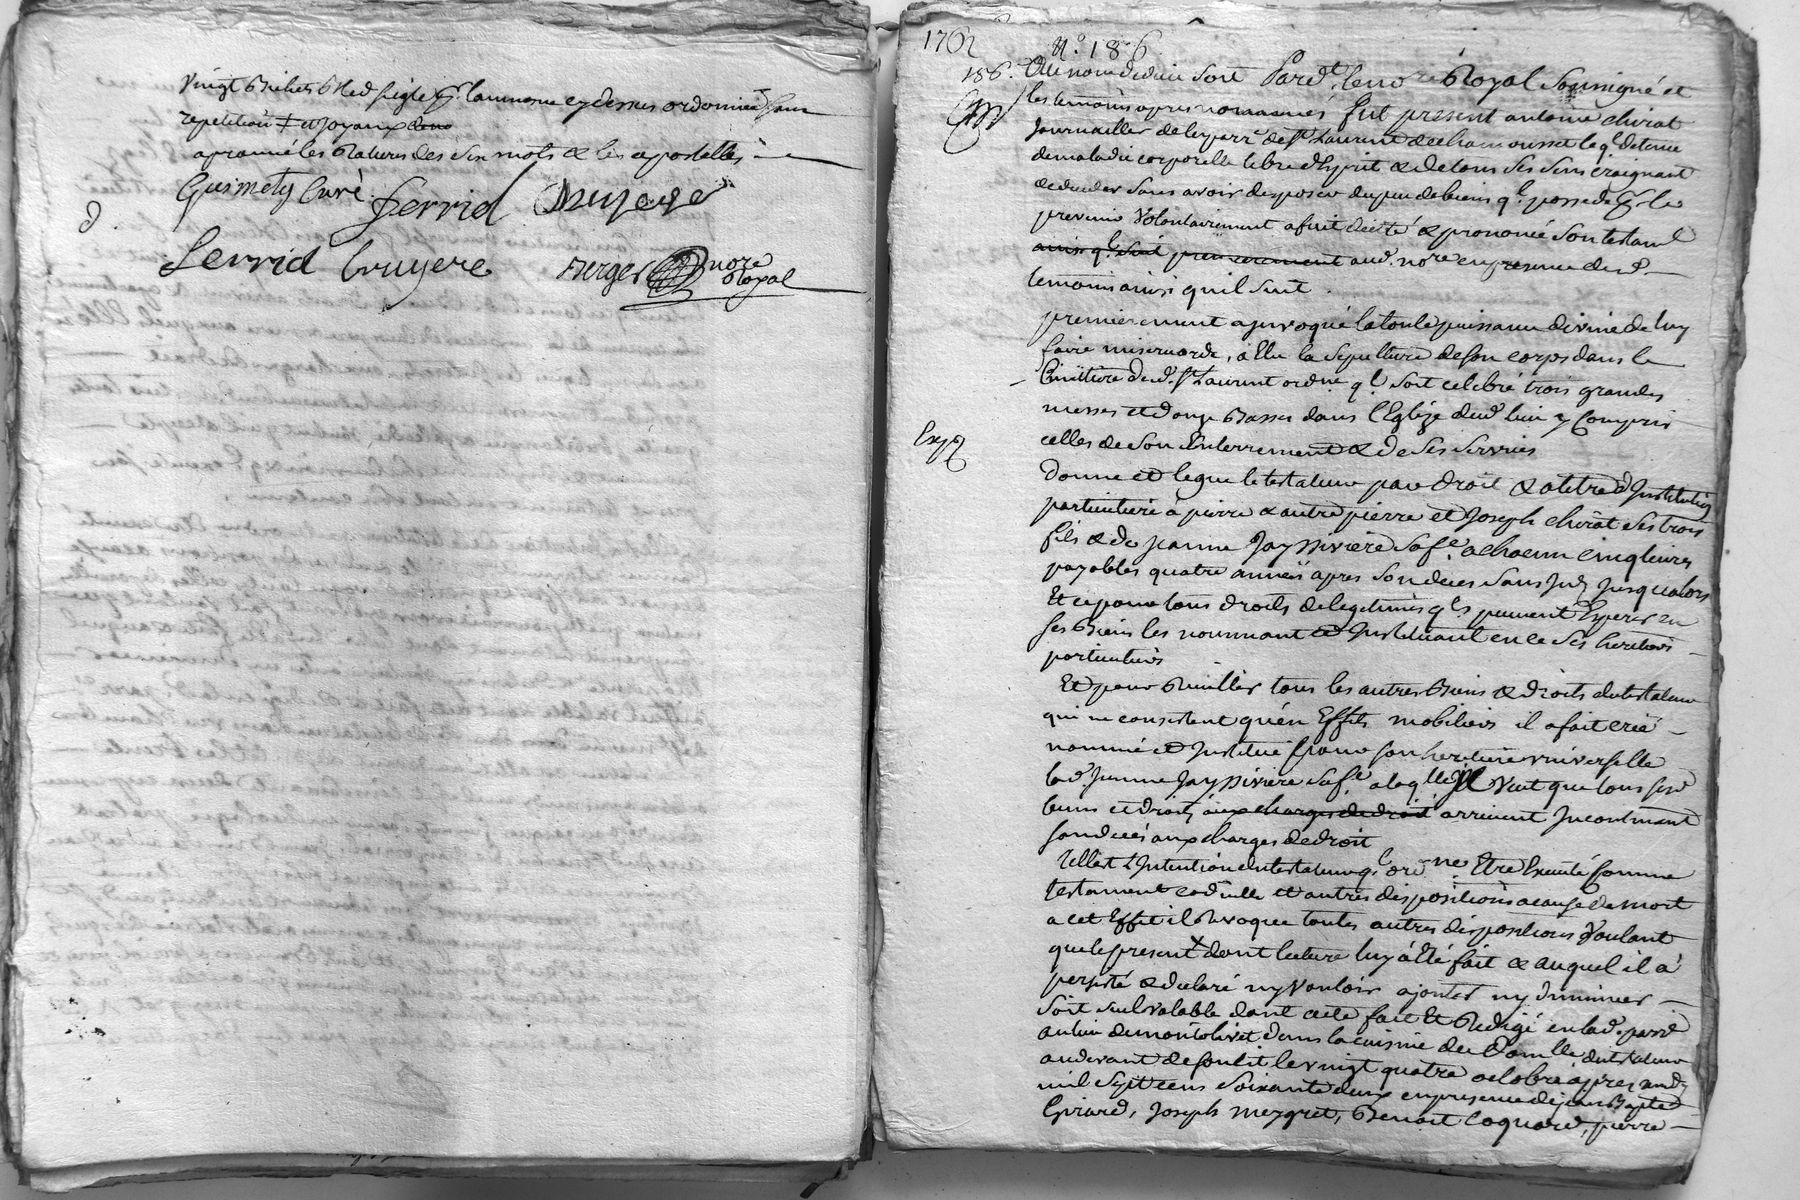 vingt Bichets bled seigle pr. laumosne cy dessus ordonnée sans
repetition ‡ et joyaux
aprouvé les Ratures des six mots & les apostilles
Guimety Curé ferrid Bruyere
ferrid bruyere Berger nore
Royal
1762 N.° 186
186. Au nom de dieu soit Pardt. le nore Royal soussigné et
les temoins apres nommés fut present antoine chirat
Journailler de la parr.e de st Laurent de chamousset le ql. detenu
de maladie corporelle libre d'Esprit & de tous ses sens craignant
de deceder sans avoir disposer du peu de biens ql. possede pr. le
prevenir volontairement a fait dicté & prononcé son testamt
ainsi ql. suit premierement aud. nore en presence desd.
temoins ainsi quil suit
premierement a invoqué la toute puissance divine de luy
faire misericorde, a Elu la sepulture de son corps dans le
Cimitiere dud. st Laurent ordne ql. soit celebré trois grandes
messes et douze Basses dans l'Eglize dud. lieu y Compris
Exp.
celles de son Enterrement & de ses services
Donne et legue le testateur par droit & a titre d'Institution
particuliere a pierre & autre pierre et Joseph chirat ses trois
fils & de jeanne Jay Rivière sa fe. a chacun cinq livres
payables quatre années apres son deces sans Jnt. Jusqualors
Et ce pour tous droits de legitimes qls. peuvent Esperer en
ses Biens les nommant et Instituant en ce ses heritiers
particuliers
Et pour Recuillir tous les autres Biens & droits du testateur
qui ne consistent qu'en Effets mobiliers il a fait créé
nommé et Jnstitué pour son heritiere universelle
lad. Jeanne Jay Riviere sa fe. a laqlle il Veut que tous sesd.
biens et droits aux charges de droit arrivent Jncontinant
son deces aux charges de droit
Telle est L'Intention du testateur ql. ordne. Etre Executé Comme
testament codicille et autres dispositions a cause de mort
a cet Effet il Revoque toutes autres dispositions Voulant
que le present dont lecture luy a été fait & auquel il a
persisté & declaré ny vouloir ajouter ny diminuer
soit seul valable dont acte fait Et Redigé en lad. parr.e
au lieu de montolivet dans la cuisine du Domlle du testateur
au devant de son lit le vingt quatre octobre apres midy
mil sept cens soixante deux en presence de jean Bapte
Girard, Joseph mezgret, Benoit Coquard, pierre